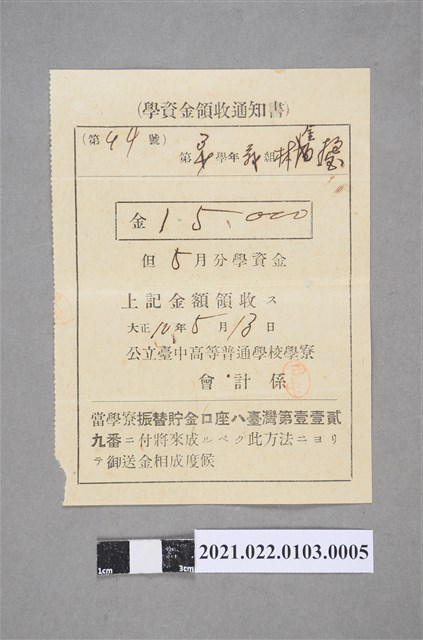 (學資金領收通知書)
(第44號)
第 學年 組 林
金 15.000
但5月分學資金
上記金額領收ス
大正10年5月13日
公立臺中高等普通學校學寮
會計係
當學寮振替貯金口座ハ臺灣第壹壹貳
九番ニ付將來成ルベク此方法ニヨリ
テ御送金相成度候
1cm 3cm
2021.022.0103.0005